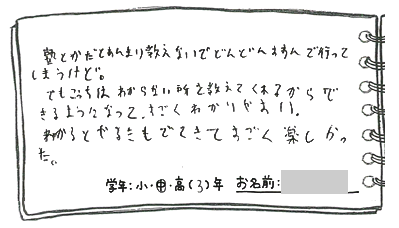 塾とかだとあんまり教えないでどんどんすすんで行って
しまうけど。
でもこっちは わからない所を教えてくれるからで
きるようになって、すごくわかりやすい。
わかるとやるきもでてきてすごく楽しかっ
た。
学年:小・中・高(3)年 お名前: